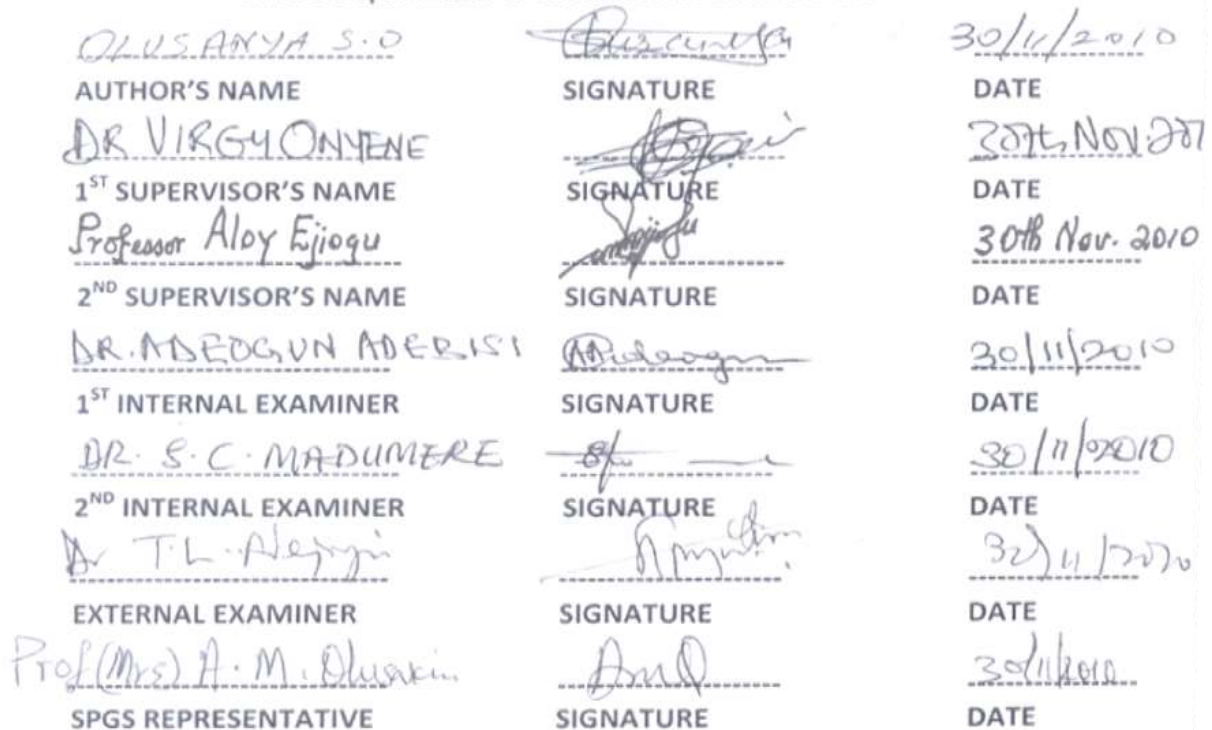 OLUSANYA S.O 30/11/2010
AUTHOR'S NAME SIGNATURE DATE
DR VIRGY ONYENE 30th Nov. 201
1ST SUPERVISOR'S NAME SIGNATURE DATE
Professor Aloy Ejiogu 30th Nov. 2010
2ND SUPERVISOR'S NAME SIGNATURE DATE
DR. ADEOGUN ADEBISI 30/11/2010
1ST INTERNAL EXAMINER SIGNATURE DATE
DR. S. C. MADUMERE 30/11/2010
2ND INTERNAL EXAMINER SIGNATURE DATE
Dr T. L. 30/11/2010
EXTERNAL EXAMINER SIGNATURE DATE
Prof (Mrs) A. M. Olusakin 30/11/2010
SPGS REPRESENTATIVE SIGNATURE DATE